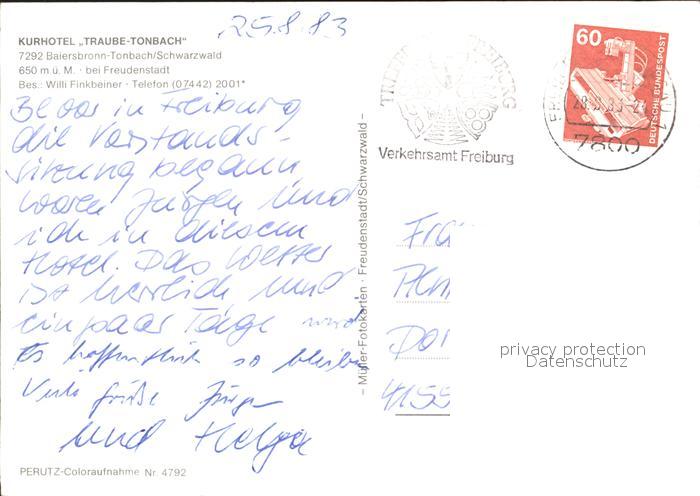 25.8.83
KURHOTEL „TRAUBE-TONBACH"
7292 Baiersbronn-Tonbach/Schwarzwald
650 m ü. M. · bei Freudenstadt
Bes.: Willi Finkbeiner · Telefon (07442) 2001*
Bevor in Freiburg
die Vorstands-
sitzung begann
waren Jürgen und
ich in diesem
Hotel. Das Wetter
ist herrlich und
ein paar Tage wird
Es hoffentlich so bleiben
Viele Grüße Jürgen
und Helga
PERUTZ-Coloraufnahme Nr. 4792
– Müller-Fotokarten · Freudenstadt/Schwarzwald –
FREIBURG
Verkehrsamt Freiburg
60
DEUTSCHE BUNDESPOST
7800
Frä
Dor
4155
privacy protection
Datenschutz